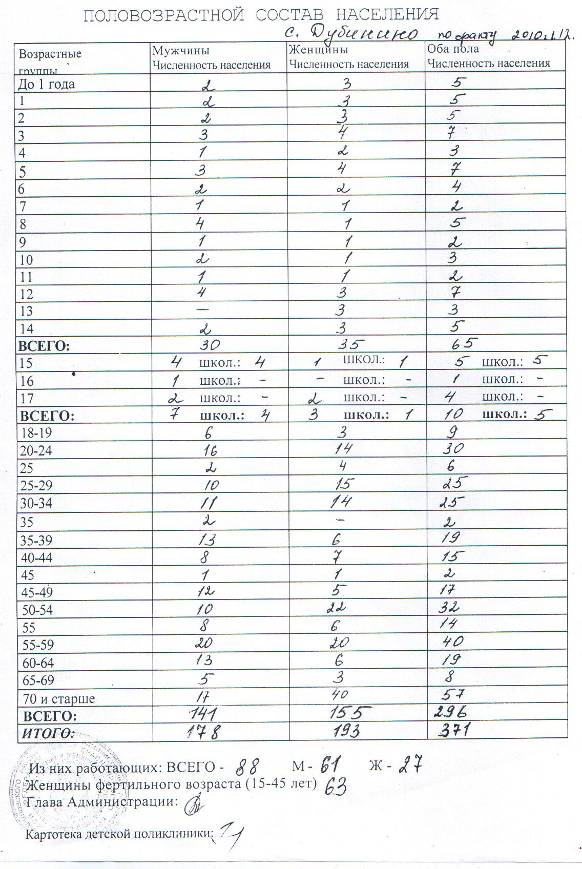 ПОЛОВОЗРАСТНОЙ СОСТАВ НАСЕЛЕНИЯ
с. Дубинино по факту 2010г.
Возрастные группы Мужчины Численность населения Женщины Численность населения Оба пола Численность населения
До 1 года 2 3 5
1 2 3 5
2 2 3 5
3 3 4 7
4 1 2 3
5 3 4 7
6 2 2 4
7 1 1 2
8 4 1 5
9 1 1 2
10 2 1 3
11 1 1 2
12 4 3 7
13 — 3 3
14 2 3 5
ВСЕГО: 30 35 65
15 4 школ.: 4 1 школ.: 1 5 школ.: 5
16 1 школ.: - - школ.: - 1 школ.: -
17 2 школ.: - 2 школ.: - 4 школ.: -
ВСЕГО: 7 школ.: 4 3 школ.: 1 10 школ.: 5
18-19 6 3 9
20-24 16 14 30
25 2 4 6
25-29 10 15 25
30-34 11 14 25
35 2 - 2
35-39 13 6 19
40-44 8 7 15
45 1 1 2
45-49 12 5 17
50-54 10 22 32
55 8 6 14
55-59 20 20 40
60-64 13 6 19
65-69 5 3 8
70 и старше 17 40 57
ВСЕГО: 141 155 296
ИТОГО: 178 193 371
Из них работающих: ВСЕГО - 88 М - 61 Ж - 27
Женщины фертильного возраста (15-45 лет) 63
Глава Администрации:
Картотека детской поликлиники: